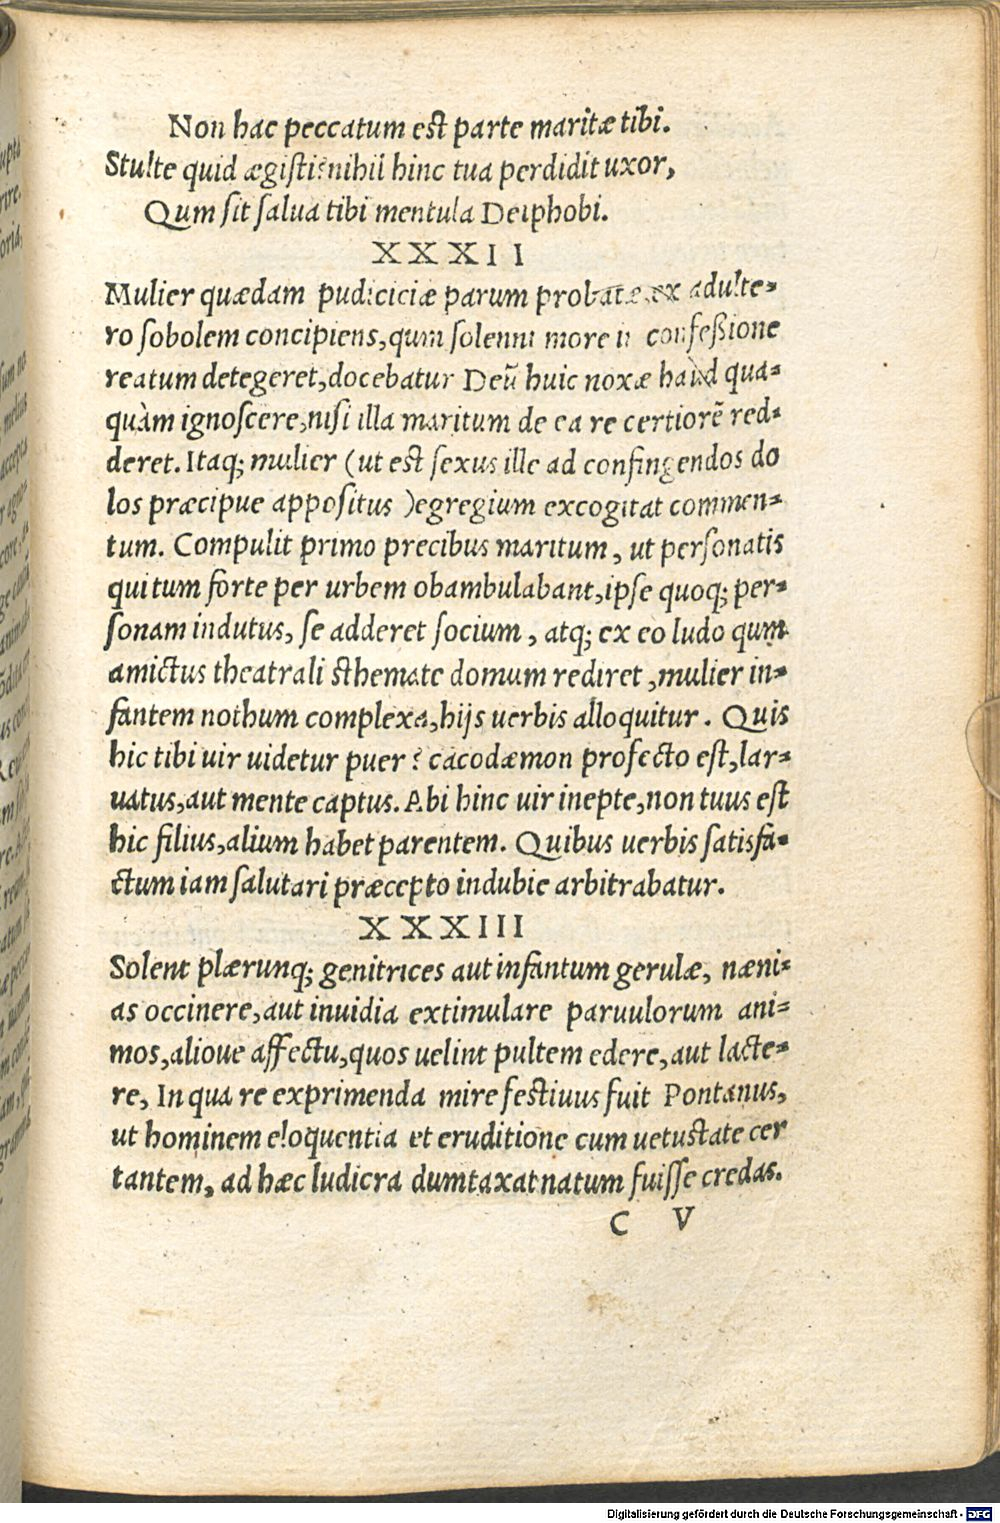 Non hac peccatum est parte maritæ tibi.
Stulte quid ægisti?nihil hinc tua perdidit uxor,
Qum sit salua tibi mentula Deiphobi.
XXXII
Mulier quædam pudiciciæ parum probatæ,ex adulte-
ro sobolem concipiens,qum solenni more confeßione
reatum detegeret,docebatur Deũ huic noxæ haud qua-
quàm ignoscere,nisi illa maritum de ea re certiorẽ red-
deret. Itaq; mulier (ut est sexus ille ad confingendos do
los præcipue appositus )egregium excogitat commen-
tum. Compulit primo precibus maritum, ut personatis
qui tum forte per urbem obambulabant,ipse quoq; per-
sonam indutus, se adderet socium, atq; ex eo ludo qum
amictus theatrali sthemate domum rediret,mulier in-
fantem nothum complexa,hijs uerbis alloquitur. Quis
hic tibi uir uidetur puer? cacodæmon profecto est,lar-
uatus,aut mente captus. Abi hinc uir inepte,non tuus est
hic filius,alium habet parentem. Quibus uerbis satisfa-
ctum iam salutari præcepto indubie arbitrabatur.
XXXIII
Solent plærunq; genitrices aut infantum gerulæ, næni-
as occinere,aut inuidia extimulare paruulorum ani-
mos,alioue affectu,quos uelint pultem edere,aut lacte-
re, In qua re exprimenda mire festiuus fuit Pontanus,
ut hominem eloquentia et eruditione cum uetustate cer
tantem, ad hæc ludicra dumtaxat natum fuisse credas.
C V
Digitalisierung gefördert durch die Deutsche Forschungsgemeinschaft - DFG